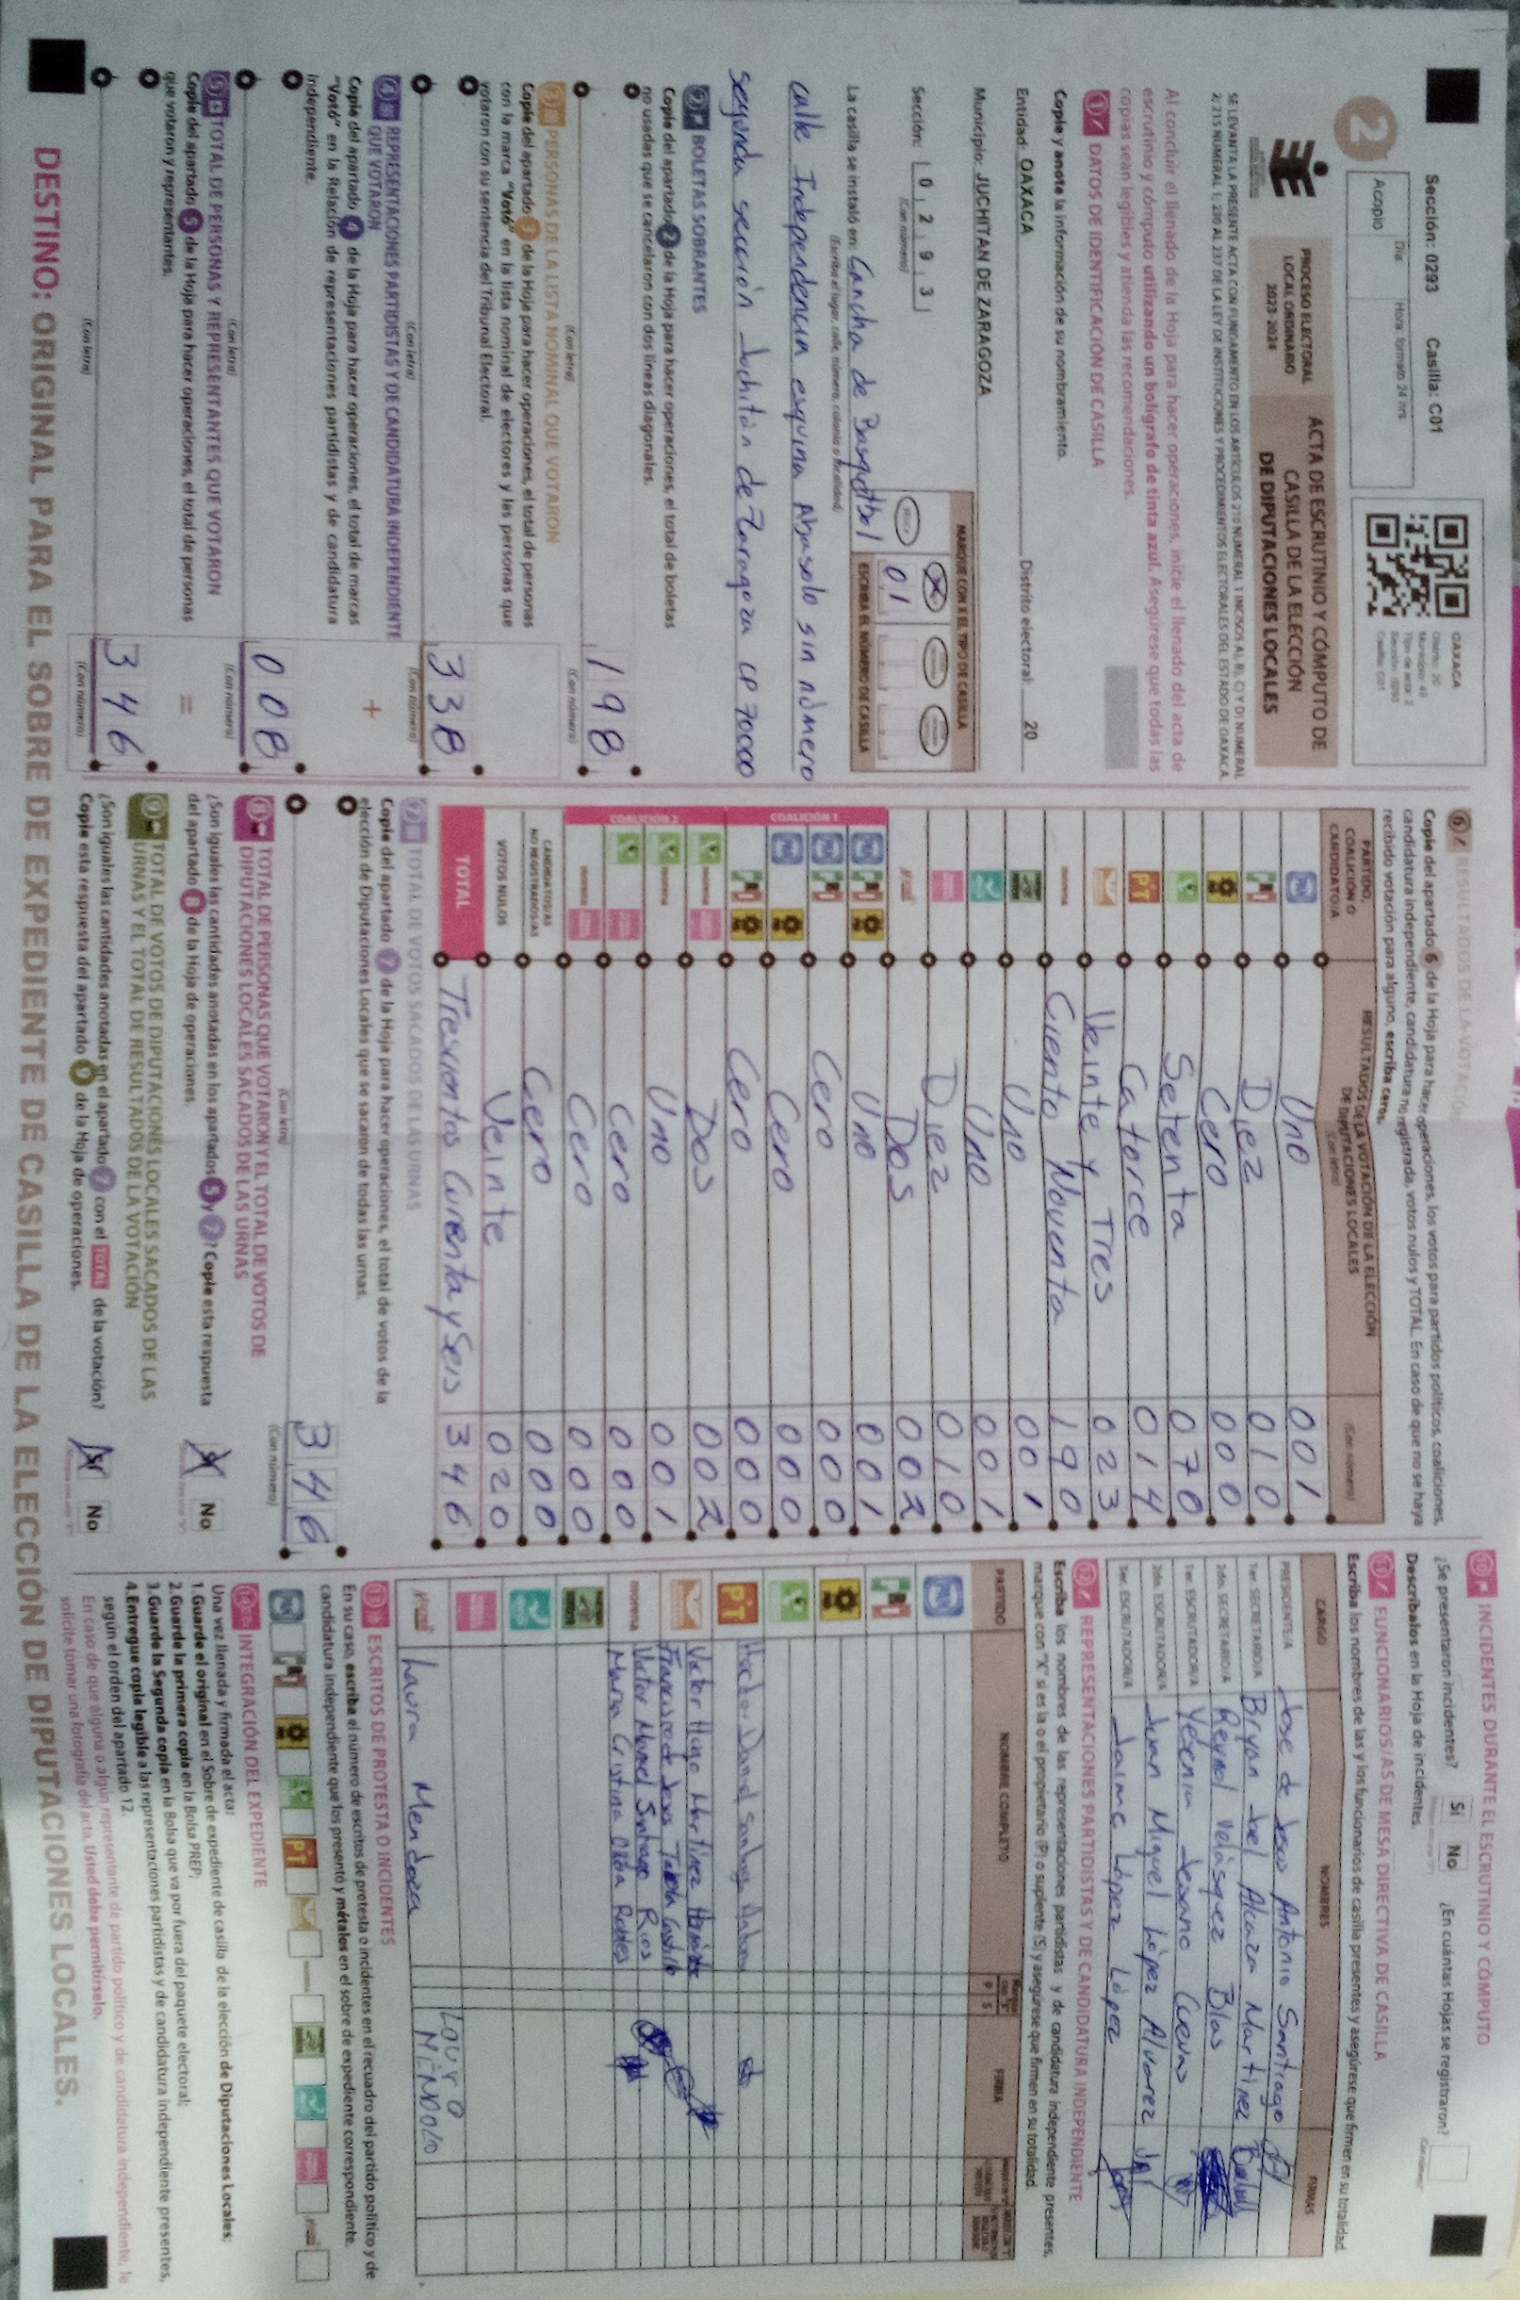 Sección: 0293 Casilla: C01
2
Día Hora: formato 24 hrs.
Acopio
OAXACA
Distrito: 20
PROCESO ELECTORAL
LOCAL ORDINARIO
2023-2024
ACTA DE ESCRUTINIO Y CÓMPUTO DE
CASILLA DE LA ELECCIÓN
DE DIPUTACIONES LOCALES
Al concluir el llenado de la Hoja para hacer operaciones, inicie el llenado del acta de
escrutinio y cómputo utilizando un bolígrafo de tinta azul. Asegúrese que todas las
copias sean legibles y atienda las recomendaciones.
1 DATOS DE IDENTIFICACIÓN DE CASILLA
Copie y anote la información de su nombramiento.
Entidad: OAXACA Distrito electoral: 20
Municipio: JUCHITAN DE ZARAGOZA
Sección: 0 2 9 3
(Con número)
MARQUE CON X EL TIPO DE CASILLA
X
ESCRIBA EL NÚMERO DE CASILLA
0 1
La casilla se instaló en: Cancha de Basquetbol
(Escriba el lugar, calle, número, colonia o localidad)
calle Independencia esquina Abasolo sin número
segunda sección Juchitán de Zaragoza CP 70000
2 BOLETAS SOBRANTES
Copie del apartado 2 de la Hoja para hacer operaciones, el total de boletas
no usadas que se cancelaron con dos líneas diagonales.
198
(Con letra) (Con número)
3 PERSONAS DE LA LISTA NOMINAL QUE VOTARON
Copie del apartado 3 de la Hoja para hacer operaciones, el total de personas
con la marca "Votó" en la lista nominal de electores y las personas que
votaron con su sentencia del Tribunal Electoral.
338
(Con letra) (Con número)
4 REPRESENTACIONES PARTIDISTAS Y DE CANDIDATURA INDEPENDIENTE
QUE VOTARON
+
Copie del apartado 4 de la Hoja para hacer operaciones, el total de marcas
"Votó" en la Relación de representaciones partidistas y de candidatura
independiente.
008
(Con letra) (Con número)
5 TOTAL DE PERSONAS Y REPRESENTANTES QUE VOTARON
=
Copie del apartado 5 de la Hoja para hacer operaciones, el total de personas
que votaron y representantes.
346
(Con letra) (Con número)
6 RESULTADOS DE LA VOTACIÓN
Copie del apartado 6 de la Hoja para hacer operaciones, los votos para partidos políticos, coaliciones,
candidatura independiente, candidatura no registrada, votos nulos y TOTAL. En caso de que no se haya
recibido votación para alguno, escriba ceros.
PARTIDO, COALICIÓN O CANDIDATO/A
RESULTADOS DE LA VOTACIÓN DE LA ELECCIÓN
DE DIPUTACIONES LOCALES
(Con letra) (Con número)
PAN Uno 001
PRI Diez 010
Cero 000
Setenta 070
PT Catorce 014
Veinte y Tres 023
morena Ciento Noventa 190
Uno 001
Uno 001
Diez 010
Dos 002
COALICIÓN 1
Uno 001
Cero 000
Cero 000
Cero 000
COALICIÓN 2
Dos 002
Uno 001
Cero 000
Cero 000
CANDIDATOS/AS
NO REGISTRADOS/AS Cero 000
VOTOS NULOS Veinte 020
TOTAL Trescientos Curenta y Seis 346
7 TOTAL DE VOTOS SACADOS DE LAS URNAS
Copie del apartado 7 de la Hoja para hacer operaciones, el total de votos de la
elección de Diputaciones Locales que se sacaron de todas las urnas.
346
(Con letra) (Con número)
8 TOTAL DE PERSONAS QUE VOTARON Y EL TOTAL DE VOTOS DE
DIPUTACIONES LOCALES SACADOS DE LAS URNAS
¿Son iguales las cantidades anotadas en los apartados 5 y 7? Copie esta respuesta
del apartado 8 de la Hoja de operaciones.
Sí No
9 TOTAL DE VOTOS DE DIPUTACIONES LOCALES SACADOS DE LAS
URNAS Y EL TOTAL DE RESULTADOS DE LA VOTACIÓN
¿Son iguales las cantidades anotadas en el apartado 7 con el TOTAL de la votación?
Copie esta respuesta del apartado 9 de la Hoja de operaciones.
Sí No
10 INCIDENTES DURANTE EL ESCRUTINIO Y CÓMPUTO
¿Se presentaron incidentes? Sí No ¿En cuántas Hojas se registraron?
Descríbalos en la Hoja de incidentes.
11 FUNCIONARIOS/AS DE MESA DIRECTIVA DE CASILLA
Escriba los nombres de las y los funcionarios de casilla presentes y asegúrese que firmen en su totalidad.
CARGO NOMBRES FIRMAS
PRESIDENTE/A Jose de Jesus Antonio Santiago
1er. SECRETARIO/A Bryan Joel Alcaza Martinez
2do. SECRETARIO/A Reynol Velásquez Blas
1er. ESCRUTADOR/A Yesenia
2do. ESCRUTADOR/A Juan Miguel López Alvarez
3er. ESCRUTADOR/A Jaime López López
12 REPRESENTACIONES PARTIDISTAS Y DE CANDIDATURA INDEPENDIENTE
Escriba los nombres de las representaciones partidistas y de candidatura independiente presentes,
marque con "X" si es la o el propietario (P) o suplente (S) y asegúrese que firmen en su totalidad.
PARTIDO NOMBRE COMPLETO P S FIRMA
PT Hector Daniel
Victor Hugo Martinez
Francisco de Jesus Toledo Castillo
morena Victor Manuel Santiago Rios
Maria Cristina Robles
Laura Mendoza
13 ESCRITOS DE PROTESTA O INCIDENTES
En su caso, escriba el número de escritos de protesta o incidentes en el recuadro del partido político y de
candidatura independiente que los presentó y métalos en el sobre de expediente correspondiente.
14 INTEGRACIÓN DEL EXPEDIENTE
Una vez llenada y firmada el acta:
1. Guarde el original en el Sobre de expediente de casilla de la elección de Diputaciones Locales;
2. Guarde la primera copia en la Bolsa PREP;
3. Guarde la Segunda copia en la Bolsa que va por fuera del paquete electoral;
4. Entregue copia legible a las representaciones partidistas y de candidatura independiente presentes,
según el orden del apartado 12.
En caso de que alguna o algún representante de partido político y de candidatura independiente, le
solicite tomar una fotografía del acta, Usted debe permitírselo.
DESTINO: ORIGINAL PARA EL SOBRE DE EXPEDIENTE DE CASILLA DE LA ELECCIÓN DE DIPUTACIONES LOCALES.